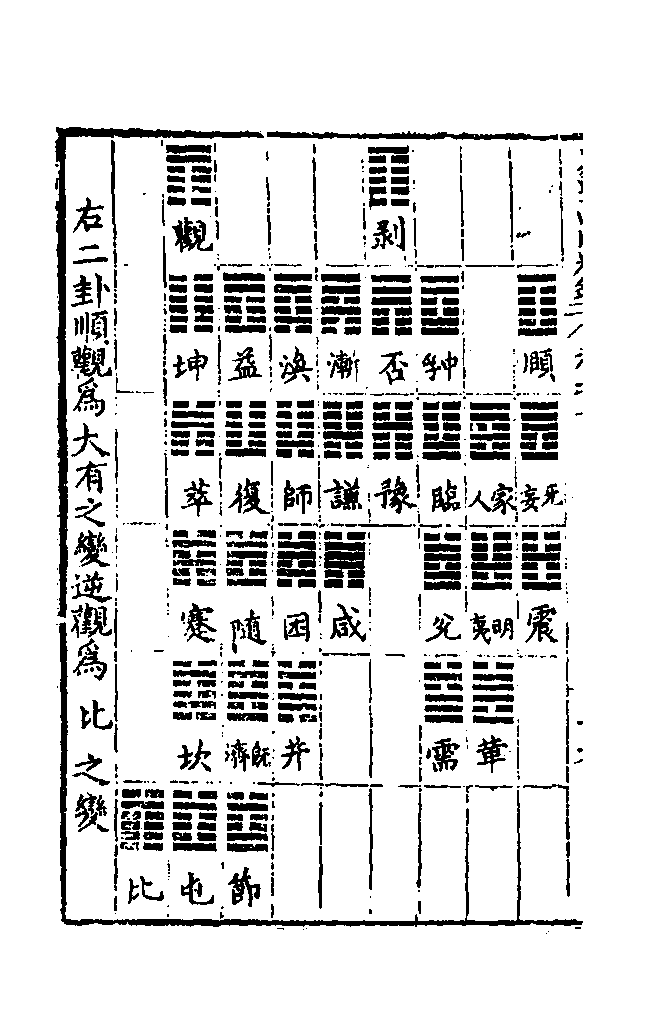 剥 觀
頤 中孚 否 漸 渙 益 坤
无妄 家人 臨 豫 謙 師 復 萃
震 明夷 兌 咸 困 隨 蹇
革 需 井 既濟 坎
節 屯 比
右二卦順觀為大有之變逆觀為比之變